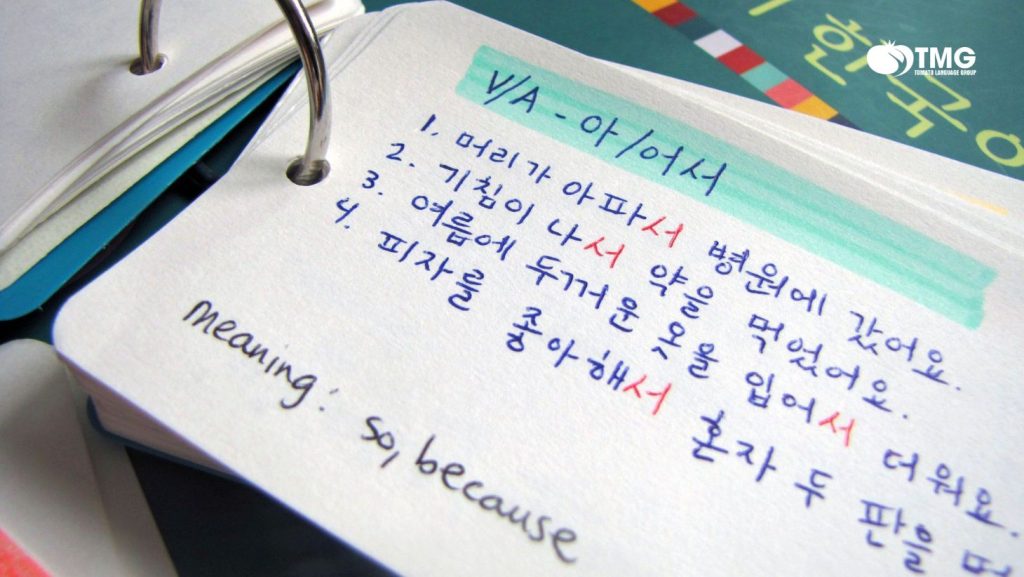 V/A - 아/어서
1. 머리가 아파서 병원에 갔어요.
2. 기침이 나서 약을 먹었어요.
3. 여름에 두꺼운 옷을 입어서 더워요.
4. 피자를 좋아해서 혼자 두 판을
meaning: so, because
TMG
TOMATO LANGUAGE GROUP
한국어